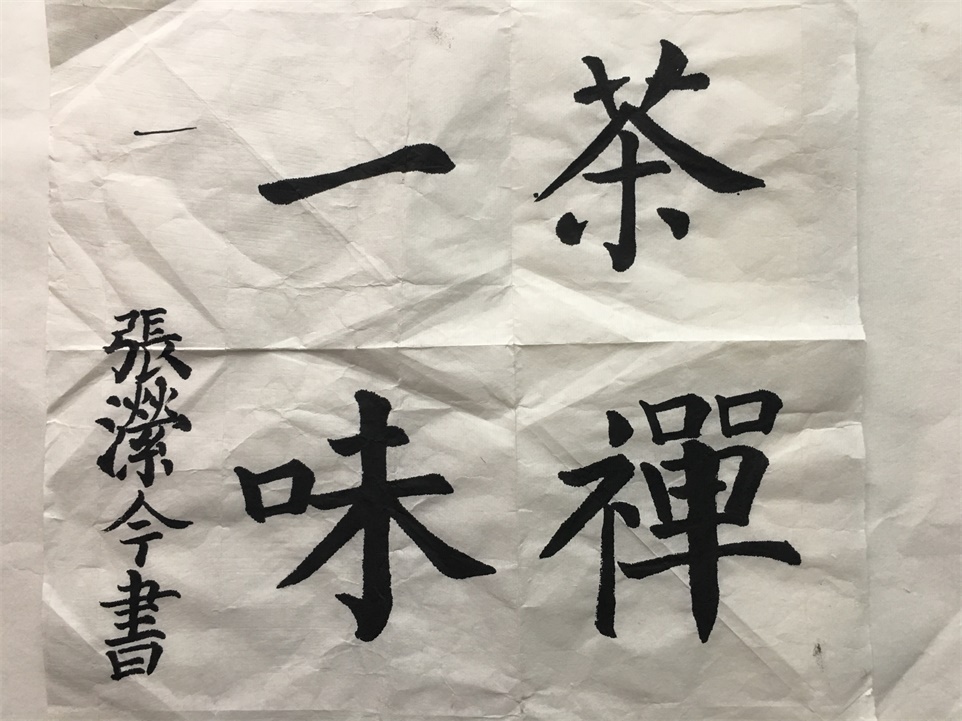 茶禪
一味
張瀠今書